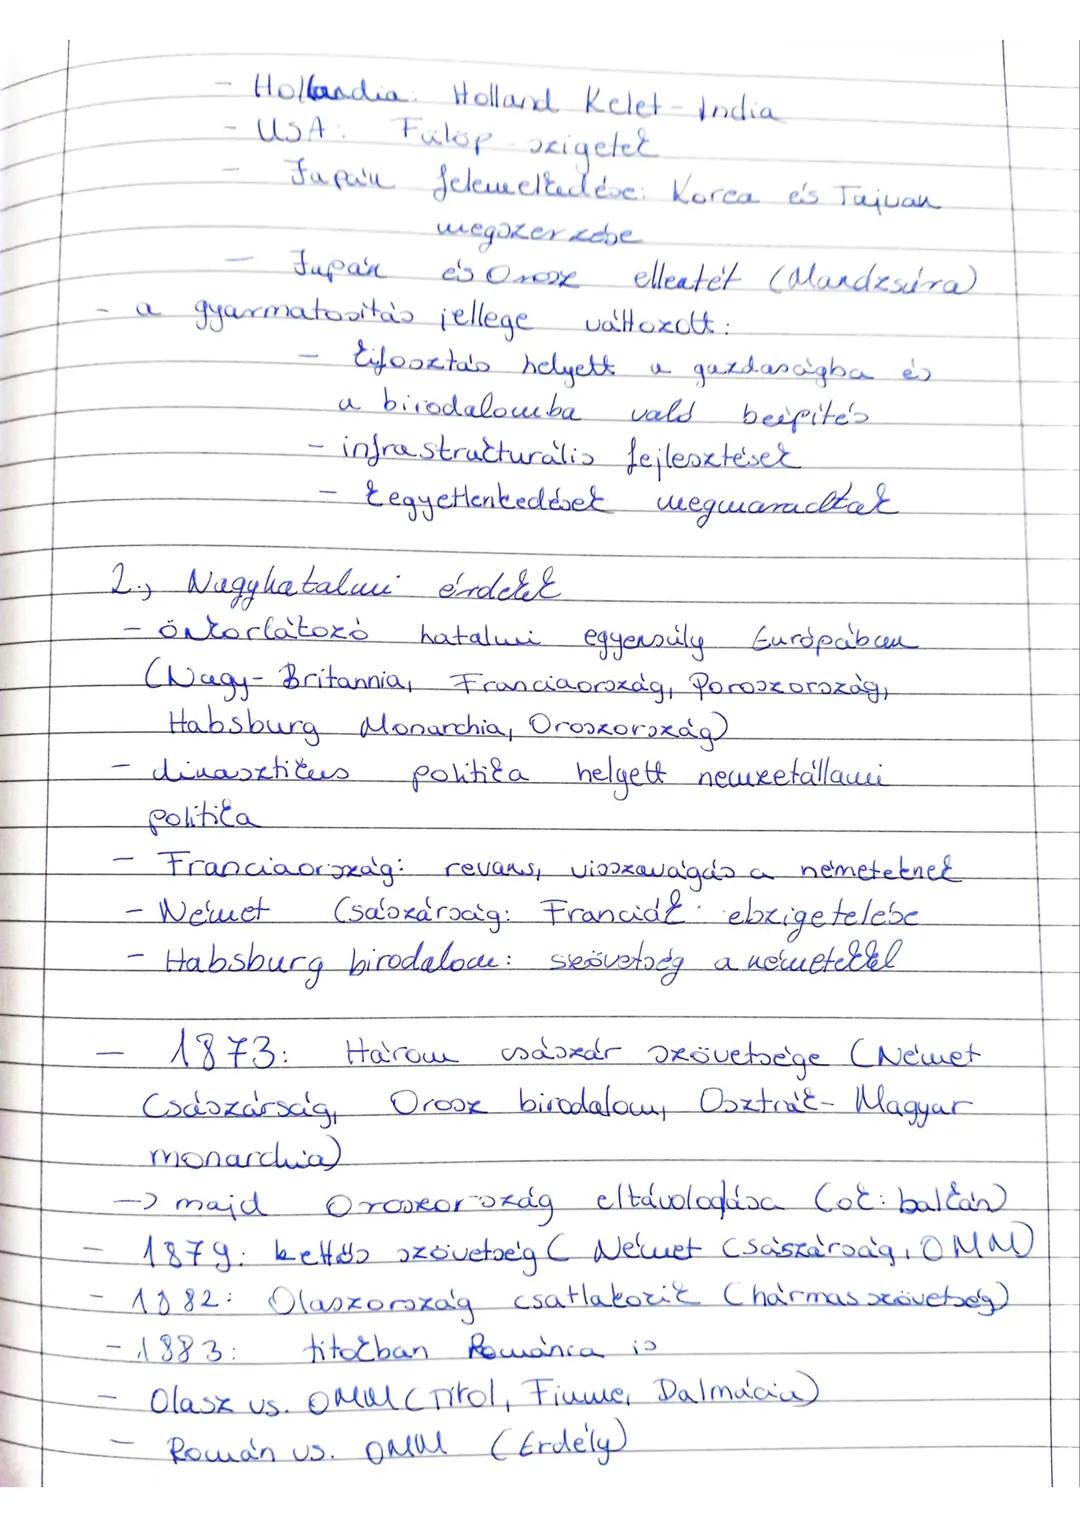 - Hollandia: Holland Kelet-India
- USA: Fülöp-szigetek
- Japán felemelkedése: Korea és Tajvan
megszerzése
- Japán és Orosz ellentét (Mandzsúria)
- a gyarmatosítás jellege változott:
- kifosztás helyett a gazdaságba és
a birodalomba való beépítés
- infrastrukturális fejlesztések
- kegyetlenkedések megmaradtak
2., Nagyhatalmi érdekek
- önkorlátozó hatalmi egyensúly Európában
(Nagy-Britannia, Franciaország, Poroszország,
Habsburg Monarchia, Oroszország)
- dinasztikus politika helyett nemzetállami
politika
- Franciaország: revans, visszavágás a németeknek
- Német Császárság: Franciák elszigetelése
- Habsburg birodalom: szövetség a németekkel
- 1873: Három császár szövetsége (Német
Császárság, Orosz birodalom, Osztrák-Magyar
monarchia)
-> majd Oroszország eltávolodása (ok: balkán)
- 1879: kettős szövetség (Német Császárság, OMM)
- 1882: Olaszország csatlakozik (hármas szövetség)
- 1883: titokban Románia is
- Olasz vs. OMM (Tirol, Fiume, Dalmácia)
- Román vs. OMM (Erdély)